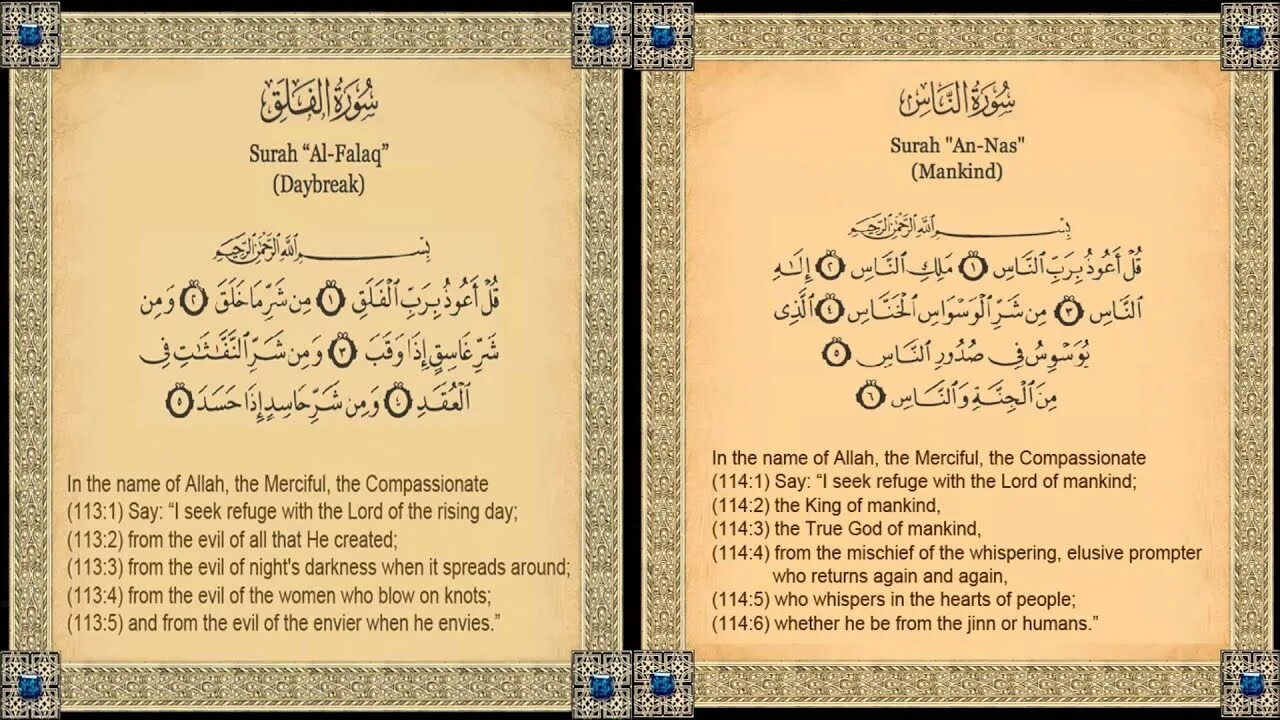 سُورَةُ الفَلَقِ
Surah “Al-Falaq”
(Daybreak)
بِسْمِ اللَّهِ الرَّحْمَٰنِ الرَّحِيمِ
قُلْ أَعُوذُ بِرَبِّ ٱلْفَلَقِ ١ مِن شَرِّ مَا خَلَقَ ٢ وَمِن
شَرِّ غَاسِقٍ إِذَا وَقَبَ ٣ وَمِن شَرِّ ٱلنَّفَّٰثَٰتِ فِي
ٱلْعُقَدِ ٤ وَمِن شَرِّ حَاسِدٍ إِذَا حَسَدَ ٥
In the name of Allah, the Merciful, the Compassionate
(113:1) Say: “I seek refuge with the Lord of the rising day;
(113:2) from the evil of all that He created;
(113:3) from the evil of night's darkness when it spreads around;
(113:4) from the evil of the women who blow on knots;
(113:5) and from the evil of the envier when he envies.”
سُورَةُ النَّاسِ
Surah "An-Nas"
(Mankind)
بِسْمِ اللَّهِ الرَّحْمَٰنِ الرَّحِيمِ
قُلْ أَعُوذُ بِرَبِّ ٱلنَّاسِ ١ مَلِكِ ٱلنَّاسِ ٢ إِلَٰهِ
ٱلنَّاسِ ٣ مِن شَرِّ ٱلْوَسْوَاسِ ٱلْخَنَّاسِ ٤ ٱلَّذِى
يُوَسْوِسُ فِى صُدُورِ ٱلنَّاسِ ٥
مِنَ ٱلْجِنَّةِ وَٱلنَّاسِ ٦
In the name of Allah, the Merciful, the Compassionate
(114:1) Say: “I seek refuge with the Lord of mankind;
(114:2) the King of mankind,
(114:3) the True God of mankind,
(114:4) from the mischief of the whispering, elusive prompter
who returns again and again,
(114:5) who whispers in the hearts of people;
(114:6) whether he be from the jinn or humans.”